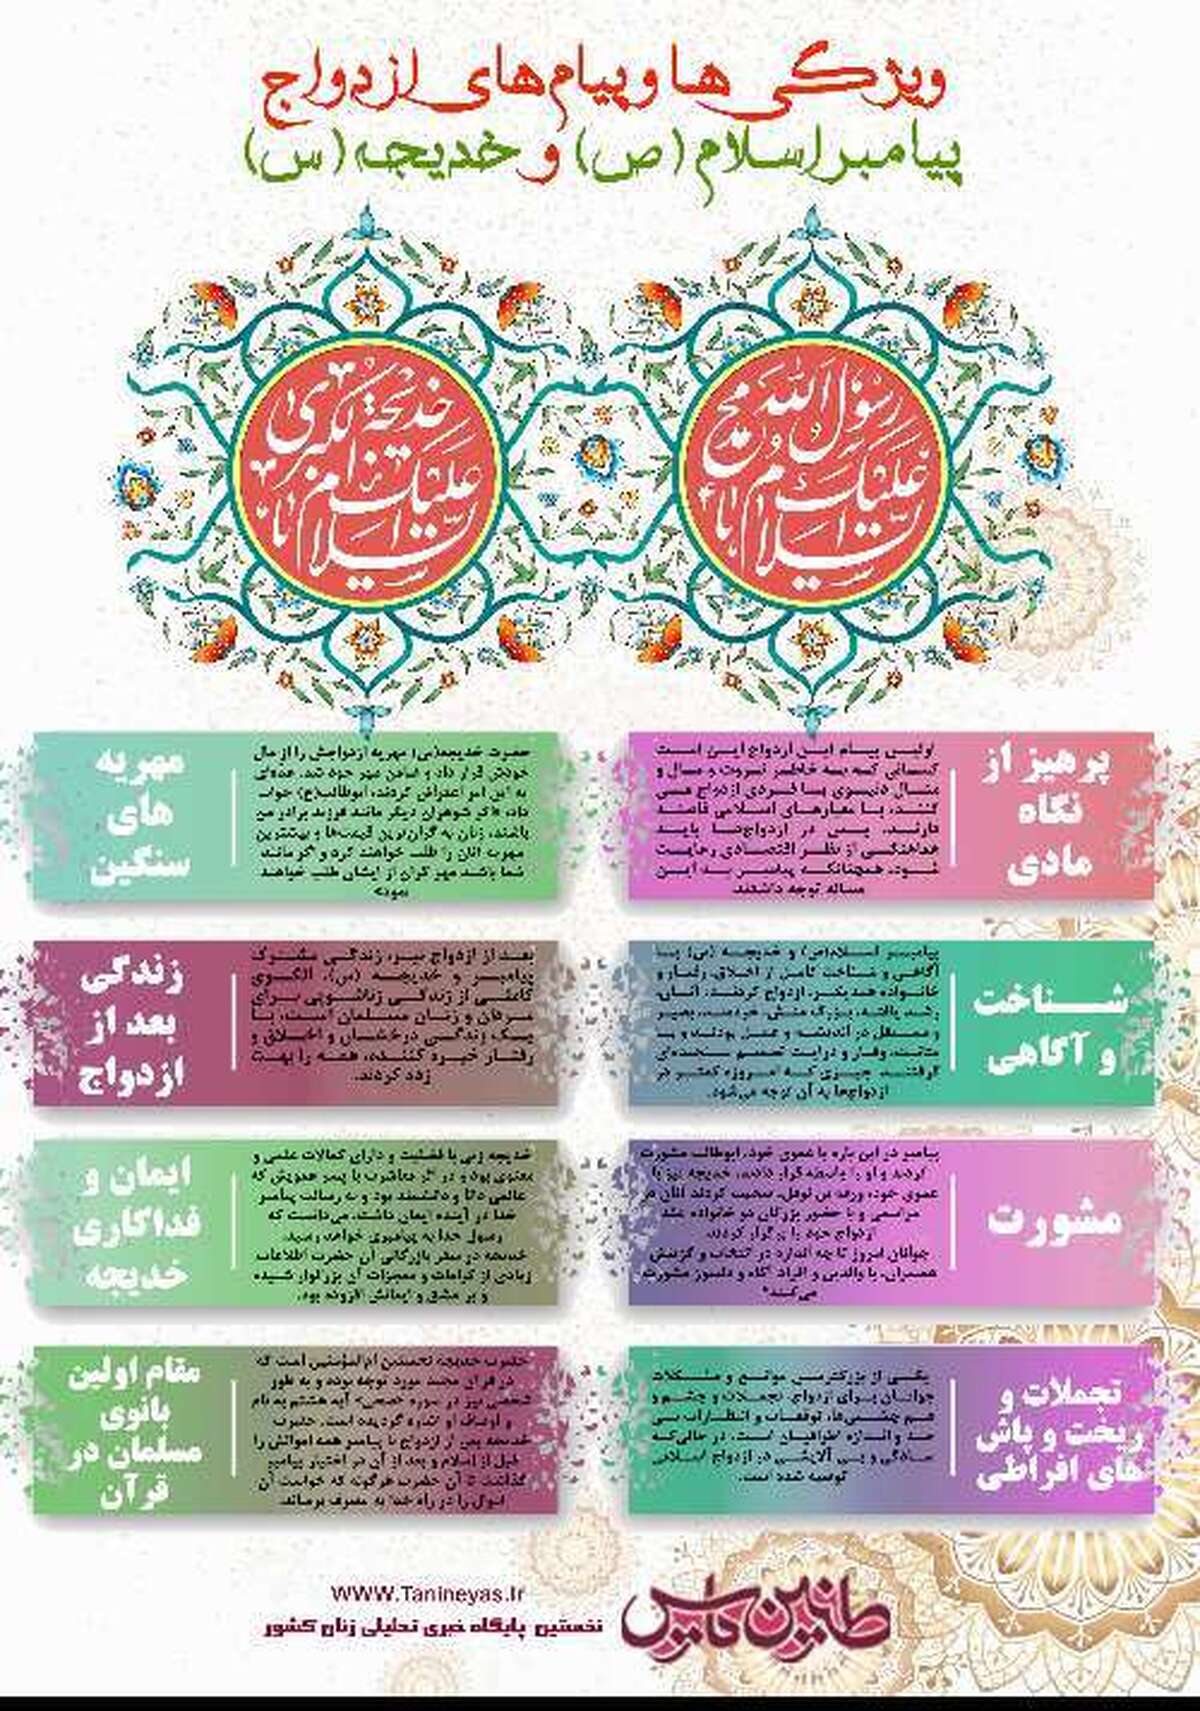 ویژگی ها و پیام های ازدواج
پیامبر اسلام (ص) و خدیجه (س)
السلام علیک یا رسول الله محمد
السلام علیک یا خدیجة الکبری
پرهیز از
نگاه
مادی
اولین پیام این ازدواج این است
کسانی که به خاطر ثروت و مال و
منال دنیوی با فردی ازدواج می
کنند، با معیارهای اسلامی فاصله
دارند. پس در ازدواج‌ها باید
هماهنگی از نظر اقتصادی رعایت
شود، همچنانکه پیامبر به این
مساله توجه داشتند
مهریه
های
سنگین
حضرت خدیجه(س) مهریه ازدواجش را از مال
خودش قرار داد و ضامن مهر خود شد. عده‌ای
به این امر اعتراض کردند، ابوطالب(ع) جواب
داد: «اگر شوهران دیگر مانند فرزند برادر من
باشند، زنان به گران‌ترین قیمت‌ها و بیشترین
مهریه آنان را طلب خواهند کرد و اگر مانند
شما باشد مهر گران از ایشان طلب خواهند
نمود»
شناخت
و آگاهی
پیامبر اسلام(ص) و خدیجه (س) با
آگاهی و شناخت کامل از اخلاق، رفتار و
خانواده همدیگر، ازدواج کردند. آنان،
رشد یافته، بزرگ منش، خردمند، بصیر
و مستقل در اندیشه و عمل بودند و با
متانت، وقار و درایت تصمیم سنجیده‌ای
گرفتند، چیزی که امروزه کمتر در
ازدواج‌ها به آن توجه می‌شود.
زندگی
بعد از
ازدواج
بعد از ازدواج نیز، زندگی مشترک
پیامبر و خدیجه (س)، الگوی
کاملی از زندگی زناشویی برای
مردان و زنان مسلمان است. با
یک زندگی درخشان و اخلاق و
رفتار خیره کننده، همه را بهت
زده کردند.
مشورت
پیامبر در این باره با عموی خود، ابوطالب مشورت
کردند و او را واسطه قرار دادند، خدیجه نیز با
عموی خود، ورقه بن نوفل، صحبت کردند آنان در
مراسمی و با حضور بزرگان دو خانواده عقد
ازدواج خود را برگزار کردند.
جوانان امروز تا چه اندازه در انتخاب و گزینش
همسران، با والدین و افراد آگاه و دلسوز مشورت
می‌کنند؟
ایمان و
فداکاری
خدیجه
خدیجه زنی با فضیلت و دارای کمالات علمی و
معنوی بود و در اثر معاشرت با پسر عمویش که
عالمی دانا و دانشمند بود و به رسالت پیامبر
خدا در آینده ایمان داشت، می‌دانست که
رسول خدا به پیامبری خواهد رسید.
خدیجه در سفر بازرگانی آن حضرت اطلاعات
زیادی از کرامات و معجزات آن بزرگوار شنیده
و بر عشق و ایمانش افزوده بود.
تجملات و
ریخت و پاش
های افراطی
یکی از بزرگترین موانع و مشکلات
جوانان برای ازدواج، تجملات و چشم و
هم چشمی‌ها، توقعات و انتظارات بی
حد و اندازه اطرافیان است، در حالی‌که
سادگی و بی آلایشی در ازدواج اسلامی
توصیه شده است.
مقام اولین
بانوی
مسلمان در
قرآن
حضرت خدیجه نخستین ام المؤمنین است که
در قرآن مجید مورد توجه بوده و به طور
شخصی نیز در سوره «ضحی» آیه هشتم به نام
و اوصاف او اشاره گردیده است. حضرت
خدیجه پس از ازدواج با پیامبر همه اموالش را
قبل از اسلام و بعد از آن در اختیار پیامبر
گذاشت تا آن حضرت هرگونه که خواست آن
اموال را در راه خدا به مصرف برساند.
طنین یاس
WWW.Tanineyas.Ir
نخستین پایگاه خبری تحلیلی زنان کشور